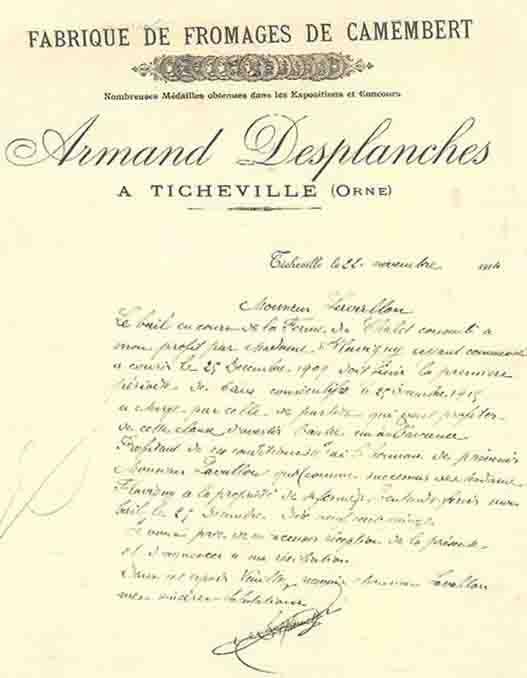 FABRIQUE DE FROMAGES DE CAMEMBERT
Nombreuses Médailles obtenues dans les Expositions et Concours
Armand Desplanches
A TICHEVILLE (ORNE)
Ticheville le 22 novembre
Monsieur Lavallou
Le bail en cours de la Ferme du Chalet consenti a
mon profit par Madame Flavigny ayant commencé
a courir le 25 Décembre 1909 doit finir la première
période de baux 25 décembre 1915
a charge par celle de partie qui veut profiter
de cette clause d'avertir l'autre d'avance
Profitant de ces conditions j'ai l'honneur de prévenir
Monsieur Lavallou comme successeur de Madame
Flavigny a la propriété de entends finir mon
bail le 25 Décembre Dix neuf cent
de m'accuser réception de la présente
et d'annoncer a ma résiliation
Dans cet espoir Veuillez recevoir Monsieur Lavallou
mes sincères salutations